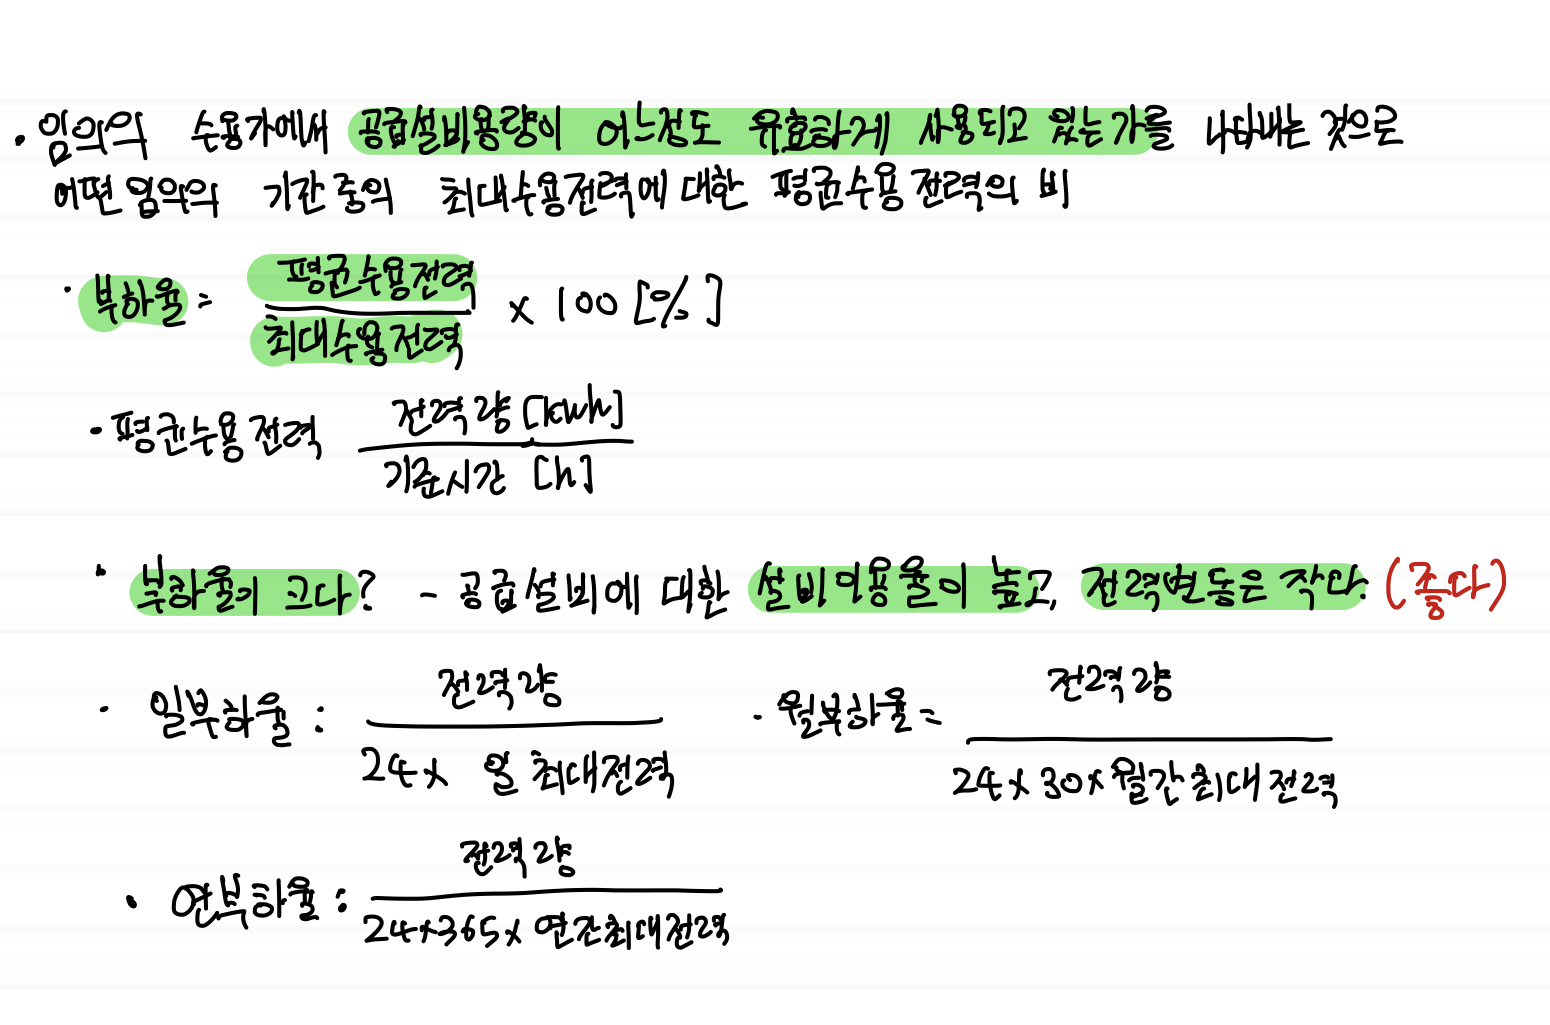 · 임의의 수용가에서 공급설비용량이 어느정도 유효하게 사용되고 있는가를 나타내는 것으로
어떤 임의의 기간 중의 최대수용전력에 대한 평균수용전력의 비
· 부하율 = 평균수용전력 / 최대수용전력 × 100 [%]
· 평균수용전력 전력량[kwh] / 기준시간 [h]
· 부하율이 크다? - 공급설비에 대한 설비이용율이 높고, 전력변동은 작다. (좋다)
· 일부하율 : 전력량 / 24 × 일 최대전력
· 월부하율 = 전력량 / 24 × 30 × 월간최대전력
· 연부하율 : 전력량 / 24 × 365 × 연간최대전력